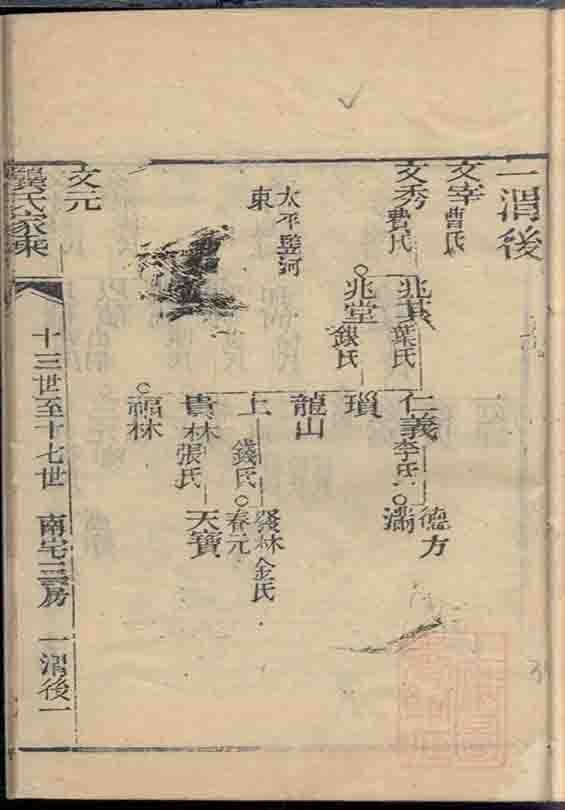 一渭後
文宰 曹氏
文秀 費氏
兆其 葉氏
仁義 李氏
德方
○滿
○兆堂 錢氏
瑣
龍山
太平豎河
東
上 錢氏
發林 金氏
○春元
貴林 張氏
天寶
○福林
文元
龔氏家乘
十三世至十七世 南宅三房 一渭後一